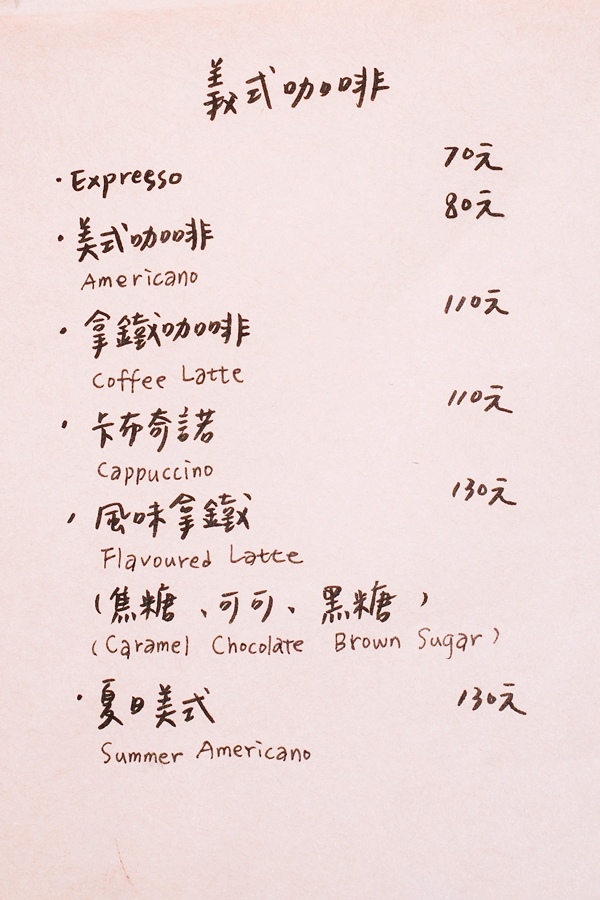 義式咖啡
·Expresso 70元
·美式咖啡 80元
Americano
·拿鐵咖啡 110元
Coffee Latte
·卡布奇諾 110元
Cappuccino
·風味拿鐵 130元
Flavoured Latte
(焦糖、可可、黑糖)
(Caramel Chocolate Brown Sugar)
·夏日美式 130元
Summer Americano